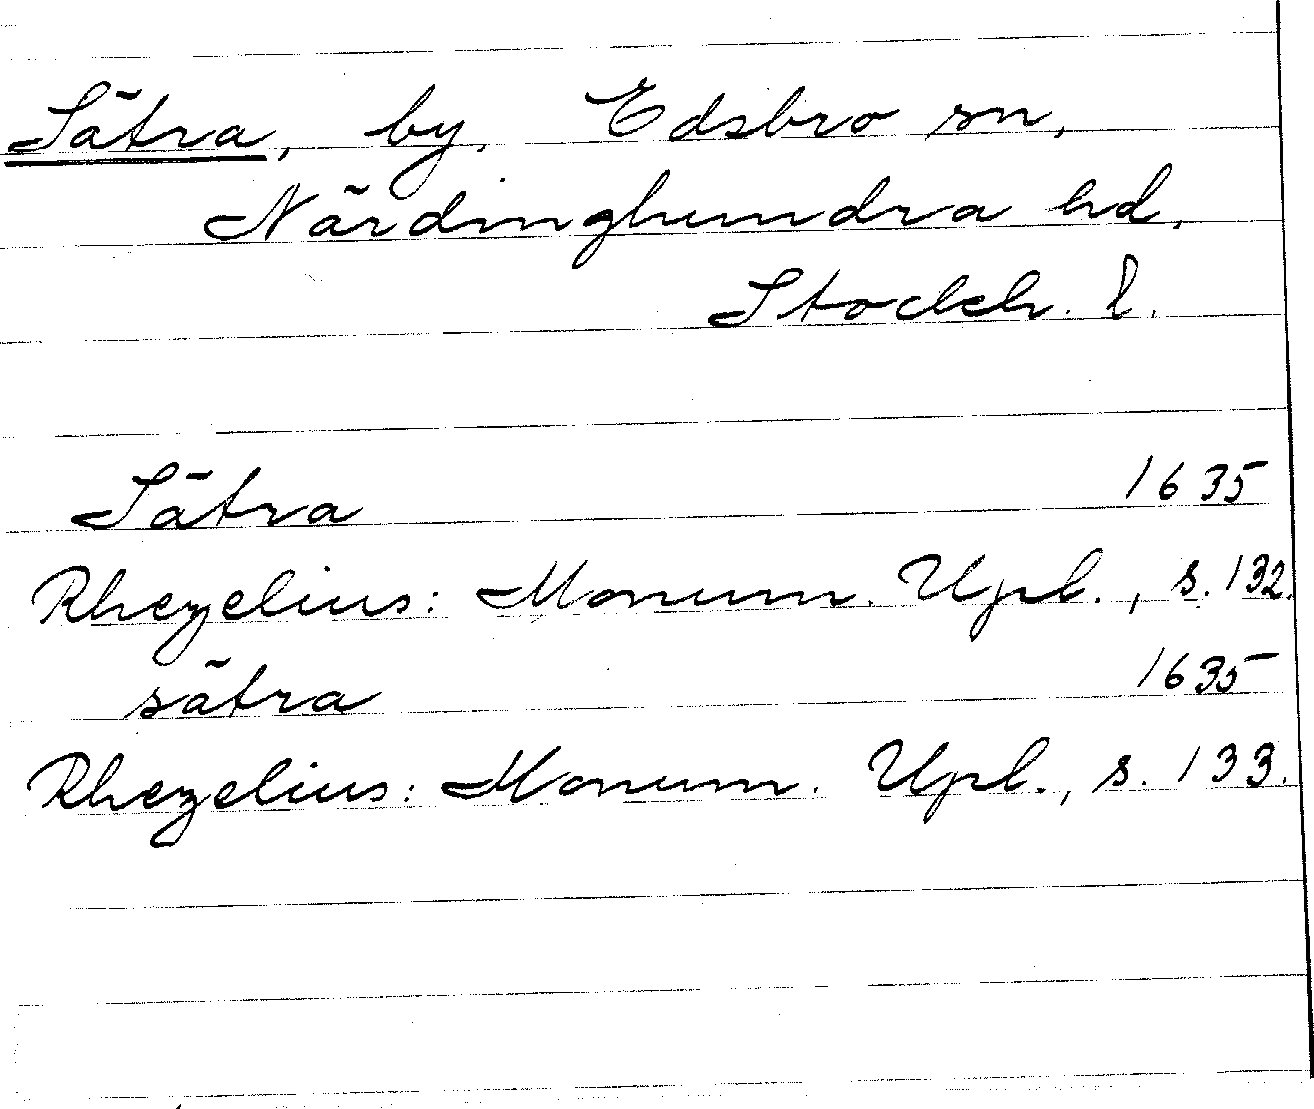 Sätra, by, Edsbro sn,
Närdinghundra hd,
Stockh. l.
Sätra 1635
Rhezelius: Monum. Upl., s. 132.
sätra 1635
Rhezelius: Monum. Upl., s. 133.